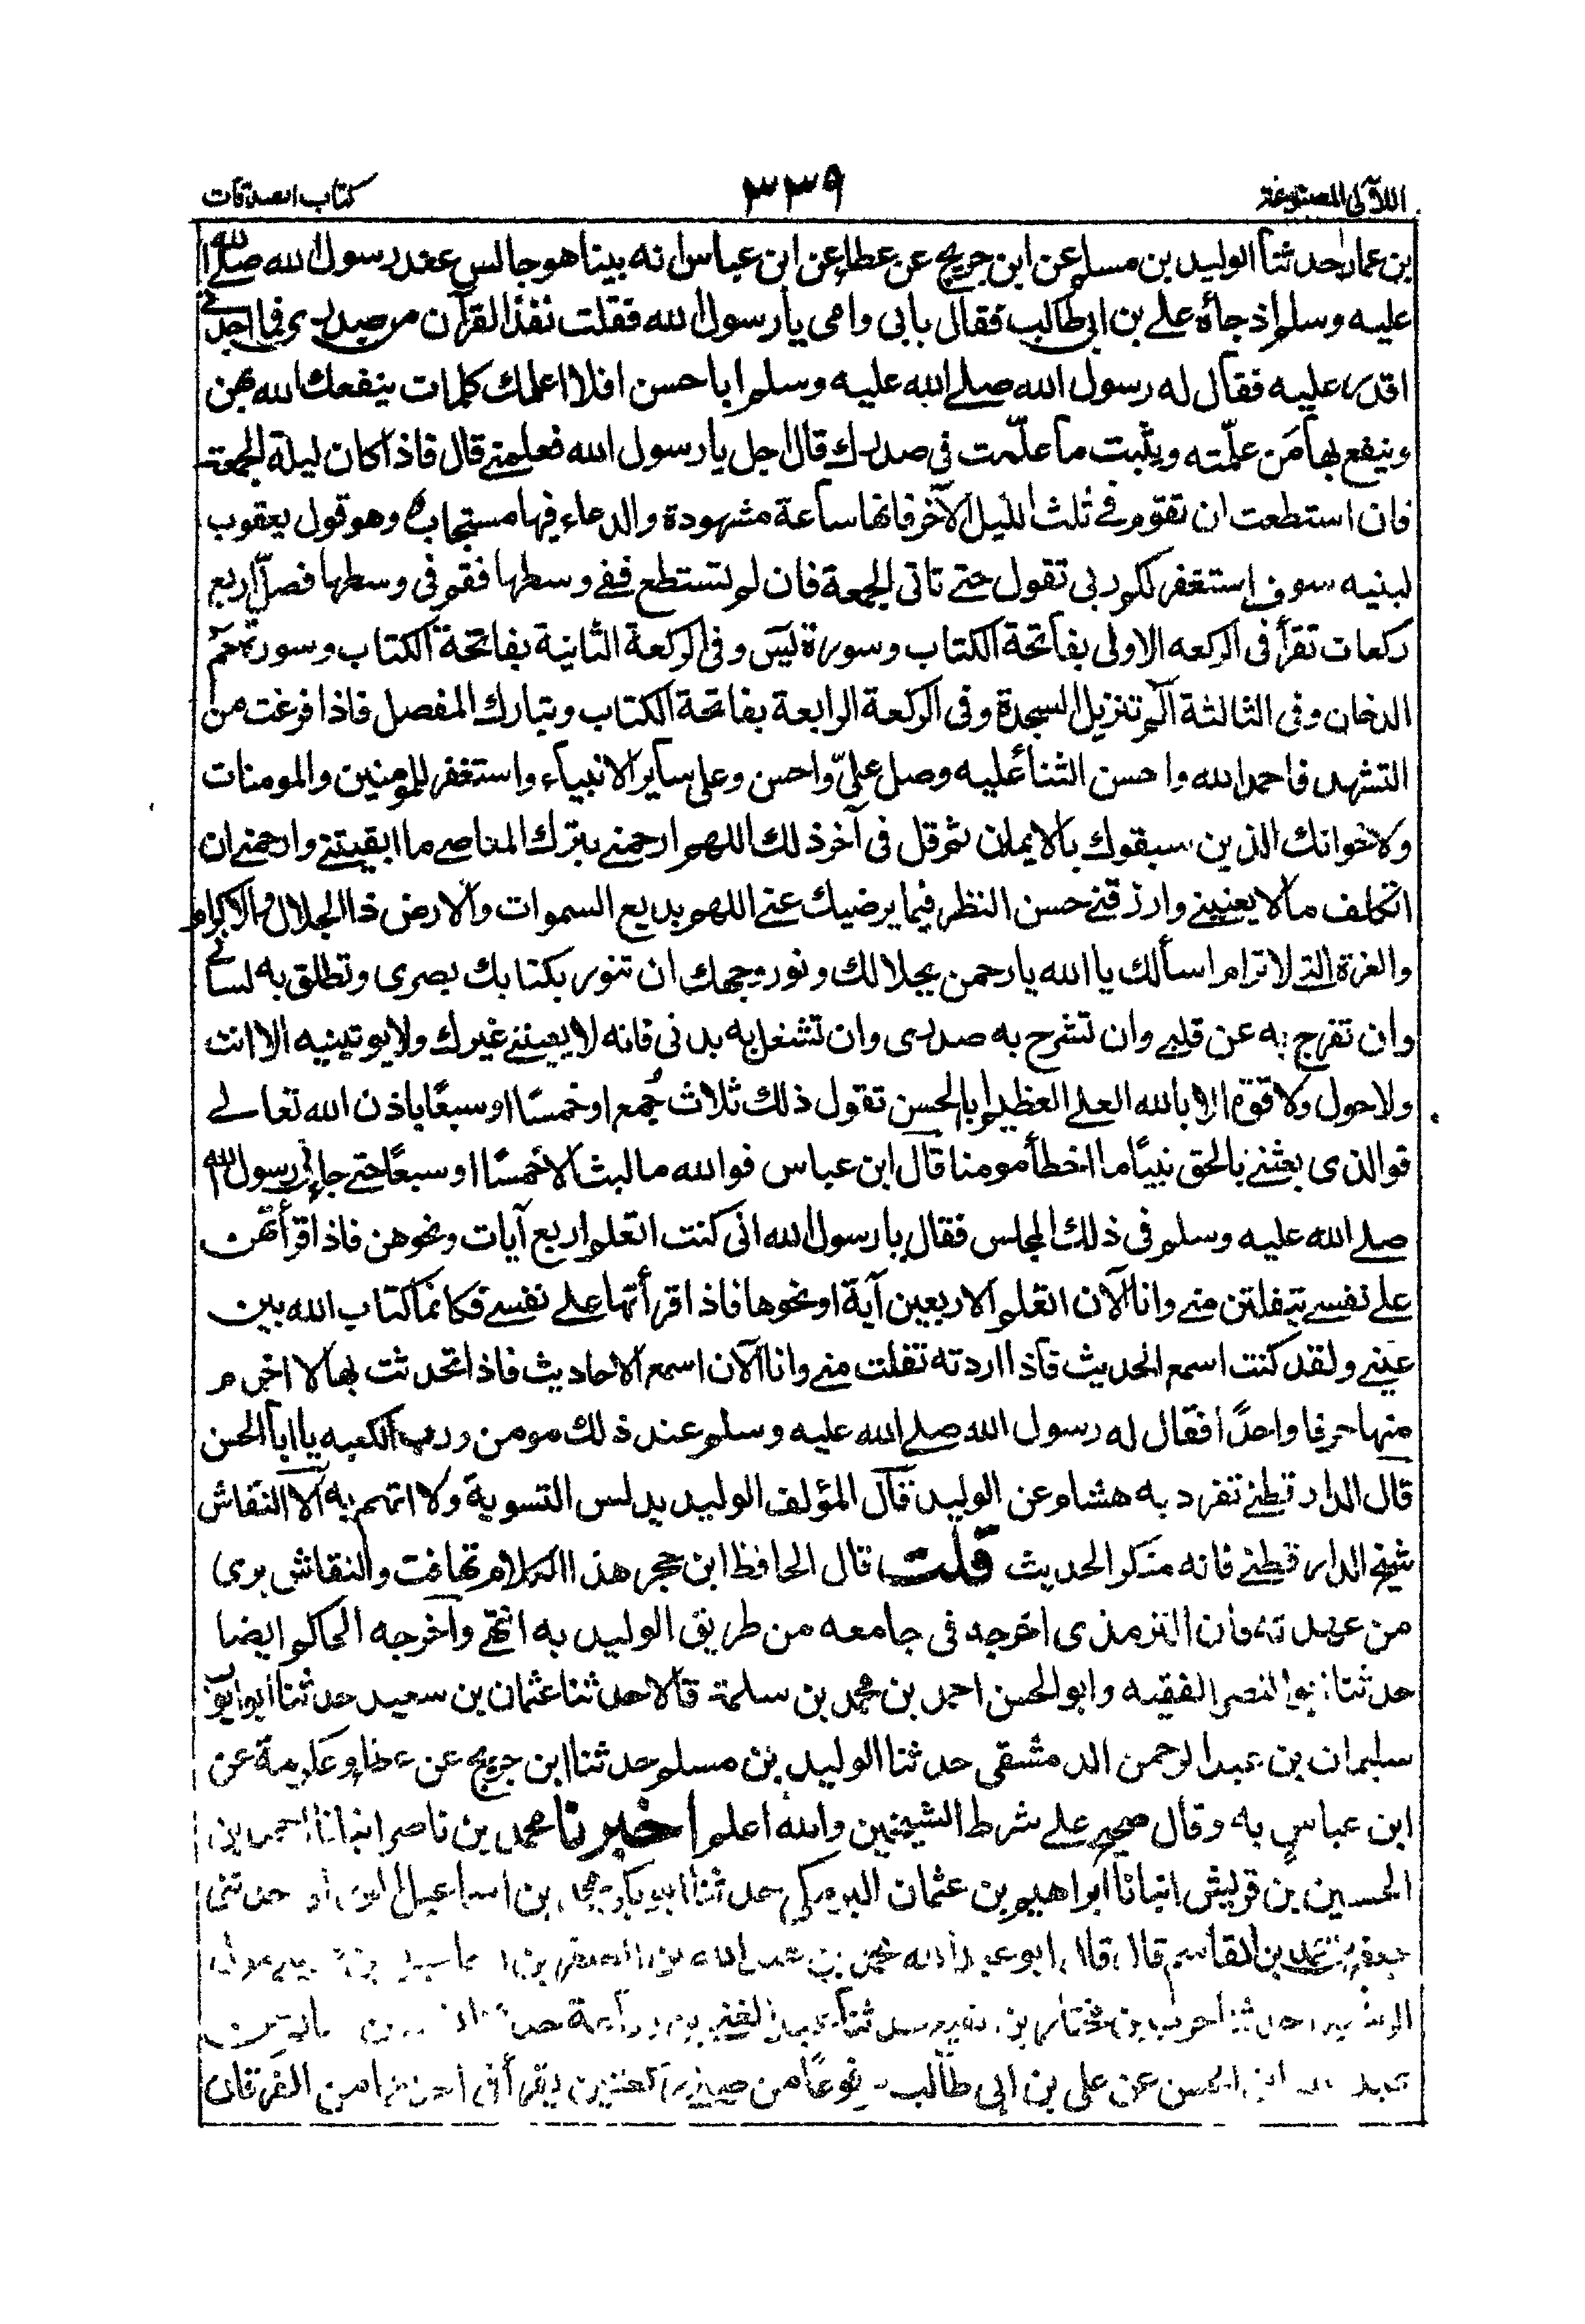 اللآلى المصنوعة ٣٣٩ كتاب الصدقات
بن عمار حدثنا الوليد بن مسلم عن ابن جريج عن عطاء عن ابن عباس انه بينا هو جالس عند رسول الله صلے الله
عليه وسلم اذ جاءه علے بن ابى طالب فقال بابى وامى يا رسول الله فقلت تفلذ القرآن من صدرى فما اجدنے
اقدر عليه فقال له رسول الله صلے الله عليه وسلم ابا حسن افلا اعلمك كلمات ينفعك الله بهن
وينفع بها من علّمته ويثبت ما علّمت فى صدرك قال اجل يا رسول الله فعلمنے قال فاذا كان ليلة الجمعة
فان استطعت ان تقوم فے ثلث الليل الآخر فانها ساعة مشهودة والدعاء فيها مستجاب وهو قول يعقوب
لبنيه سوف استغفر لكم ربى تقول حتے تاتى الجمعة فان لم تستطع ففے وسطها فقم فى وسطها فصل اربع
ركعات تقرأ فى الركعه الاولى بفاتحة الكتاب وسورة يٓس وفى الركعة الثانية بفاتحة الكتاب وسورة حمٓ
الدخان وفى الثالثة الٓم تنزيل السجدة وفى الركعة الرابعة بفاتحة الكتاب وتبارك المفصل فاذا فرغت من
التشهد فاحمد الله واحسن الثناء عليه وصل علىّ واحسن وعلى ساير الانبياء واستغفر للمومنين والمومنات
ولاخوانك الذين سبقوك بالايمان ثم قل فى آخر ذلك اللهم ارحمنے بترك المعاصے ما ابقيتنے وارحمنے ان
اتكلف ما لا يعنينے وارزقنے حسن النظر فيما يرضيك عنے اللهم بديع السموات والارض ذا الجلال والاكرام
والعزة التے لا ترام اسألك يا الله يا رحمن بجلالك ونور وجهك ان تنور بكتابك بصرى وتطلق به لسانے
وان تفرج به عن قلبے وان تشرح به صدرى وان تشغل به بدنى فانه لا يعيننے غيرك ولا يوتينيه الا انت
ولا حول ولا قوة الا بالله العلے العظيم ابا الحسن تقول ذلك ثلاث جُمع او خمسًا او سبعًا باذن الله تعالے
فوالذى بعثنے بالحق نبيًا ما اخطأ مومنا قال ابن عباس فوالله ما لبث الا خمسًا او سبعًا حتے جاء رسول الله
صلے الله عليه وسلم فى ذلك المجلس فقال يا رسول الله انى كنت اتعلم اربع آيات ونحوهن فاذا قرأتهن
علے نفسے يتفلتن منے وانا الآن اتعلم الاربعين آية او نحوها فاذا قرأتها علے نفسے فكانما كتاب الله بين
عينے ولقد كنت اسمع الحديث فاذا اردته تفلت منے وانا الآن اسمع الاحاديث فاذا تحدثت بها لا اخرم
منها حرفا واحدًا فقال له رسول الله صلے الله عليه وسلم عند ذلك مومن ورب الكعبه يا ابا الحسن
قال الدارقطنے تفرد به هشام عن الوليد قال المؤلف الوليد يدلس التسوية ولا اتهم به الا النقاش
شيخ الدارقطنے فانه منكر الحديث قلت قال الحافظ ابن حجر هذا الكلام تهافت والنقاش برى
من عهدته فان الترمذى اخرجه فى جامعه من طريق الوليد به انتهے واخرجه الحاكم ايضا
حدثنا ابو النصر الفقيه وابو الحسن احمد بن محمد بن سلمة قالا حدثنا عثمان بن سعيد حدثنا ابو ايوب
سليمان بن عبد الرحمن الدمشقى حدثنا الوليد بن مسلم حدثنا ابن جريج عن عطاء وعكرمة عن
ابن عباس به وقال صحيح علے شرط الشيخين والله اعلم اخبرنا محمد بن ناصر انبانا احمد بن
الحسين بن قريش انبانا ابراهيم بن عثمان البرمكى حدثنا ابو بكر محمد بن اسماعيل الوراق حدثنى
جعفر بن محمد بن القاسم قالا ابو عبد الله بن
حدثنا حرب بن مختار بن حدثنا
الحسن عن على بن ابى طالب من يقرأ فى من الفرقان